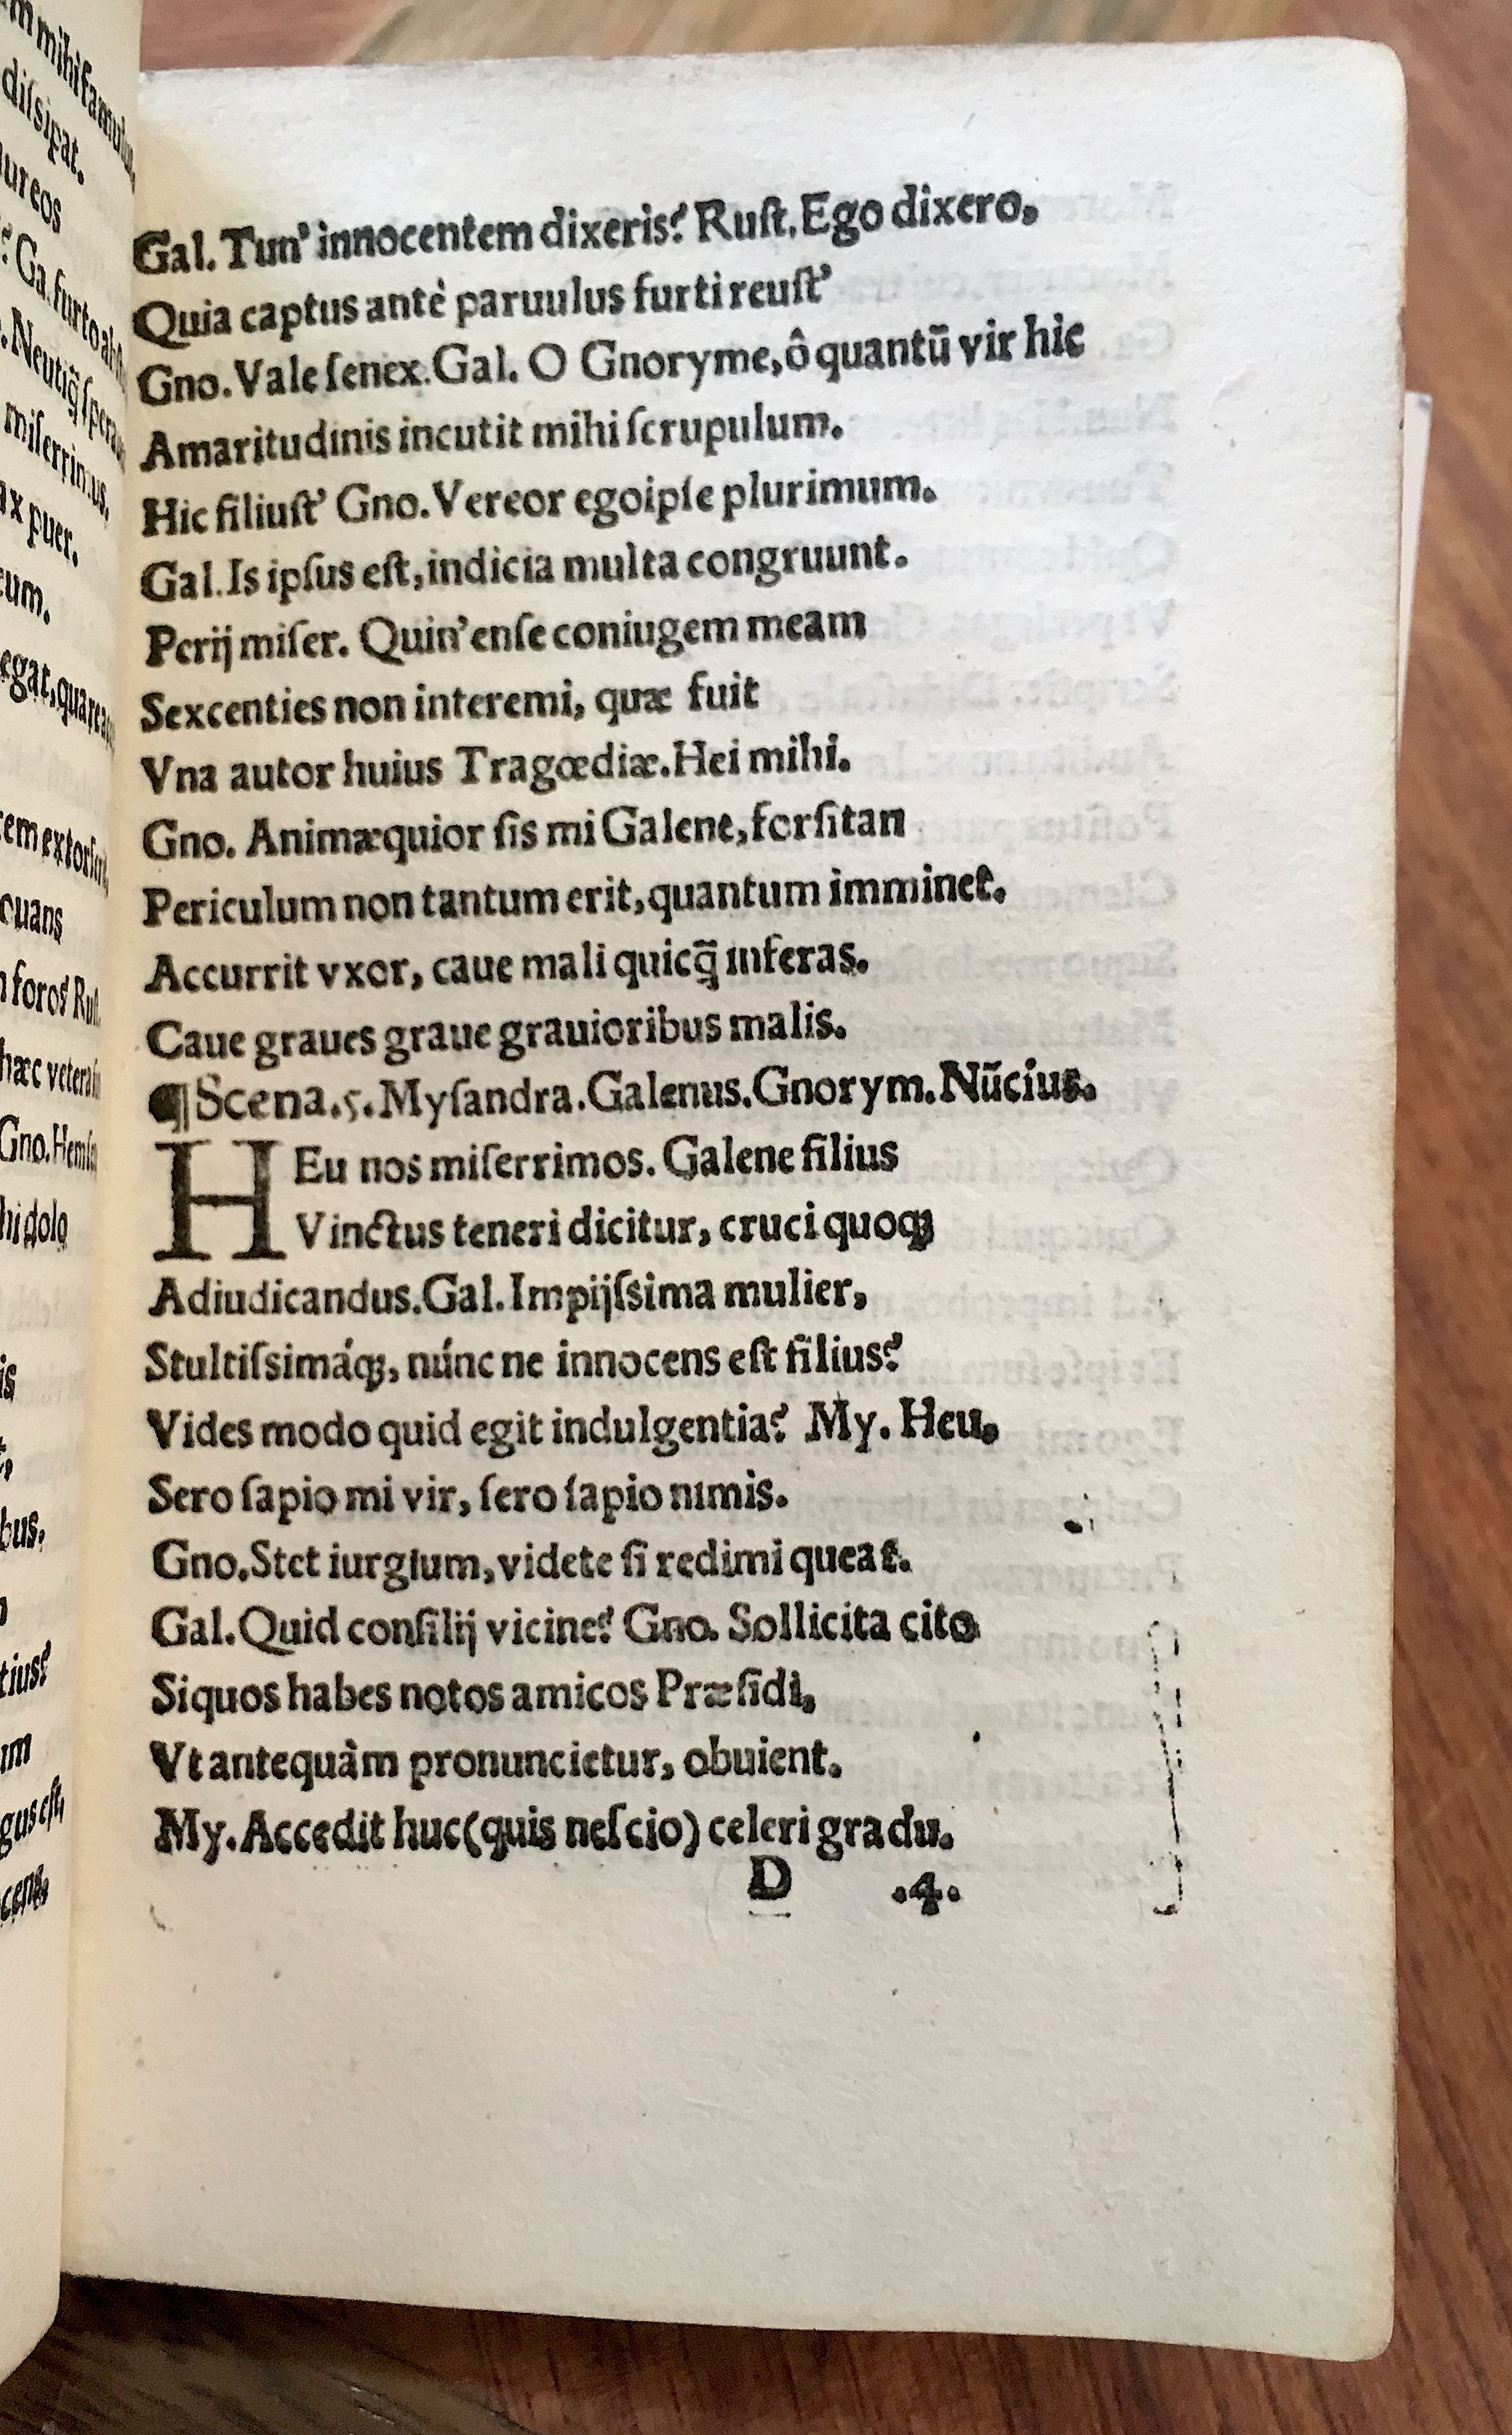 m mihi famulus,
dissipat.
ureos
Ga. furto
. Neutiq̃
miserrimus.
ax puer.
eum.
egat, quare
tem extorsit
ouans
foros? Rust.
hæc
Gno. Hem
hi dolo
is
bus.
tius?
um
gus est,
Gal. Tun' innocentem dixeris? Ruſt. Ego dixero.
Quia captus antè paruulus furti reuſt'
Gno. Vale ſenex. Gal. O Gnoryme, ô quantũ vir hic
Amaritudinis incutit mihi ſcrupulum.
Hic filiuſt' Gno. Vereor egoipſe plurimum.
Gal. Is ipſus eſt, indicia multa congruunt.
Perij miſer. Quin' enſe coniugem meam
Sexcenties non interemi, quæ fuit
Vna autor huius Tragœdiæ. Hei mihi.
Gno. Animæquior ſis mi Galene, forſitan
Periculum non tantum erit, quantum imminet.
Accurrit vxor, caue mali quicq̃ inferas.
Caue graues graue grauioribus malis.
¶ Scena. 5. Myſandra. Galenus. Gnorym. Nũcius.
HEu nos miſerrimos. Galene filius
Vinctus teneri dicitur, cruci quoqꝫ
Adiudicandus. Gal. Impijſsima mulier,
Stultiſsimáqꝫ, núnc ne innocens eſt filius?
Vides modo quid egit indulgentia? My. Heu.
Sero ſapio mi vir, ſero ſapio nimis.
Gno. Stet iurgium, videte ſi redimi queat.
Gal. Quid conſilij vicine? Gno. Sollicita cito
Siquos habes notos amicos Præſidi,
Vt antequàm pronuncietur, obuient.
My. Accedit huc (quis neſcio) celeri gradu.
D .4.